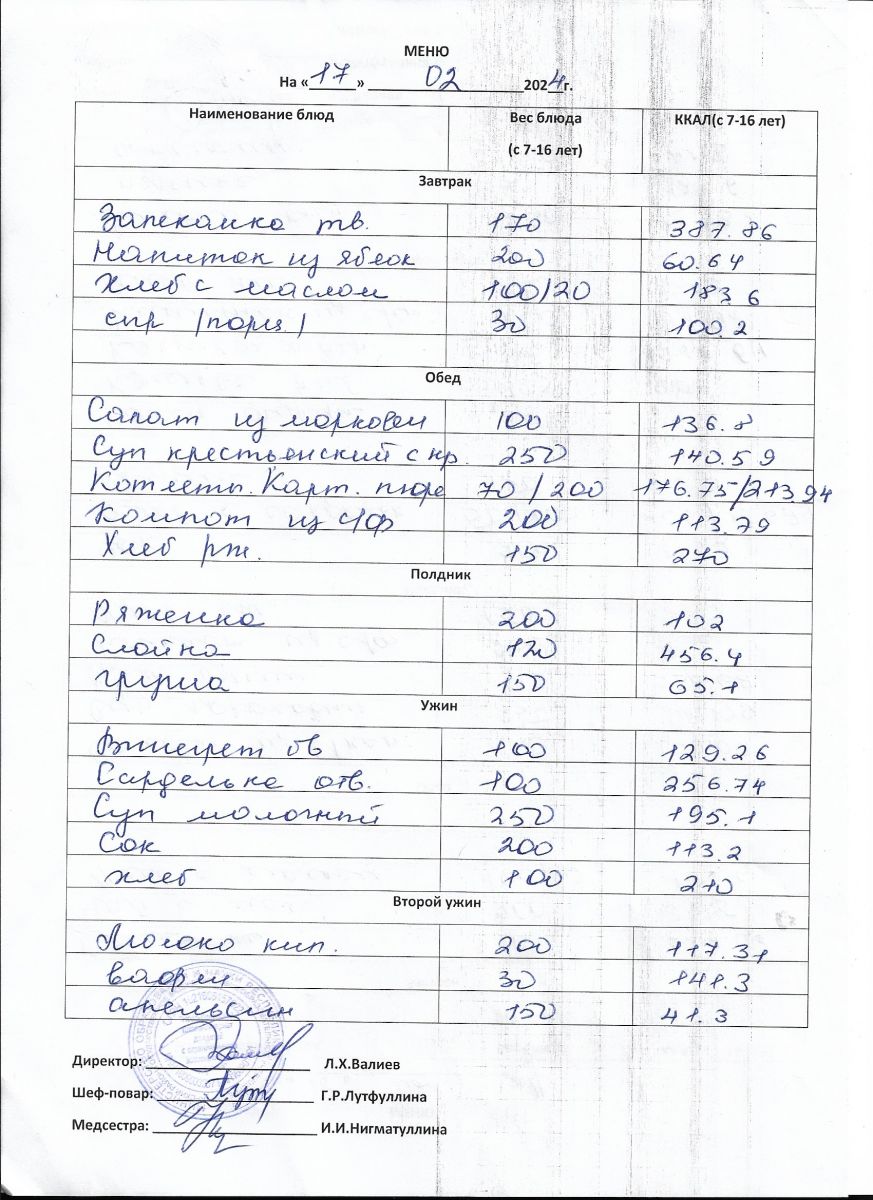 МЕНЮ
На «17» 02 2024г.
Наименование блюд Вес блюда (с 7-16 лет) ККАЛ(с 7-16 лет)
Завтрак
Запеканка тв. 170 387.86
Напиток из яблок 200 60.64
Хлеб с маслом 100/20 183.6
сыр /порц/ 30 100.2
Обед
Салат из моркови 100 136.8
Суп крестьянский с кр. 250 140.59
Котлеты. Карт. пюре 70 / 200 176.75/213.94
Компот из с/ф 200 113.79
Хлеб рж. 150 270
Полдник
Ряженка 200 102
Слойка 120 456.4
груша 150 65.1
Ужин
Винегрет ов 100 129.26
Сарделька отв. 100 256.74
Суп молочный 250 195.1
Сок 200 113.2
хлеб 100 210
Второй ужин
Молоко кип. 200 117.31
вафли 30 141.3
апельсин 150 41.3
Директор: Л.Х.Валиев
Шеф-повар: Г.Р.Лутфуллина
Медсестра: И.И.Нигматуллина